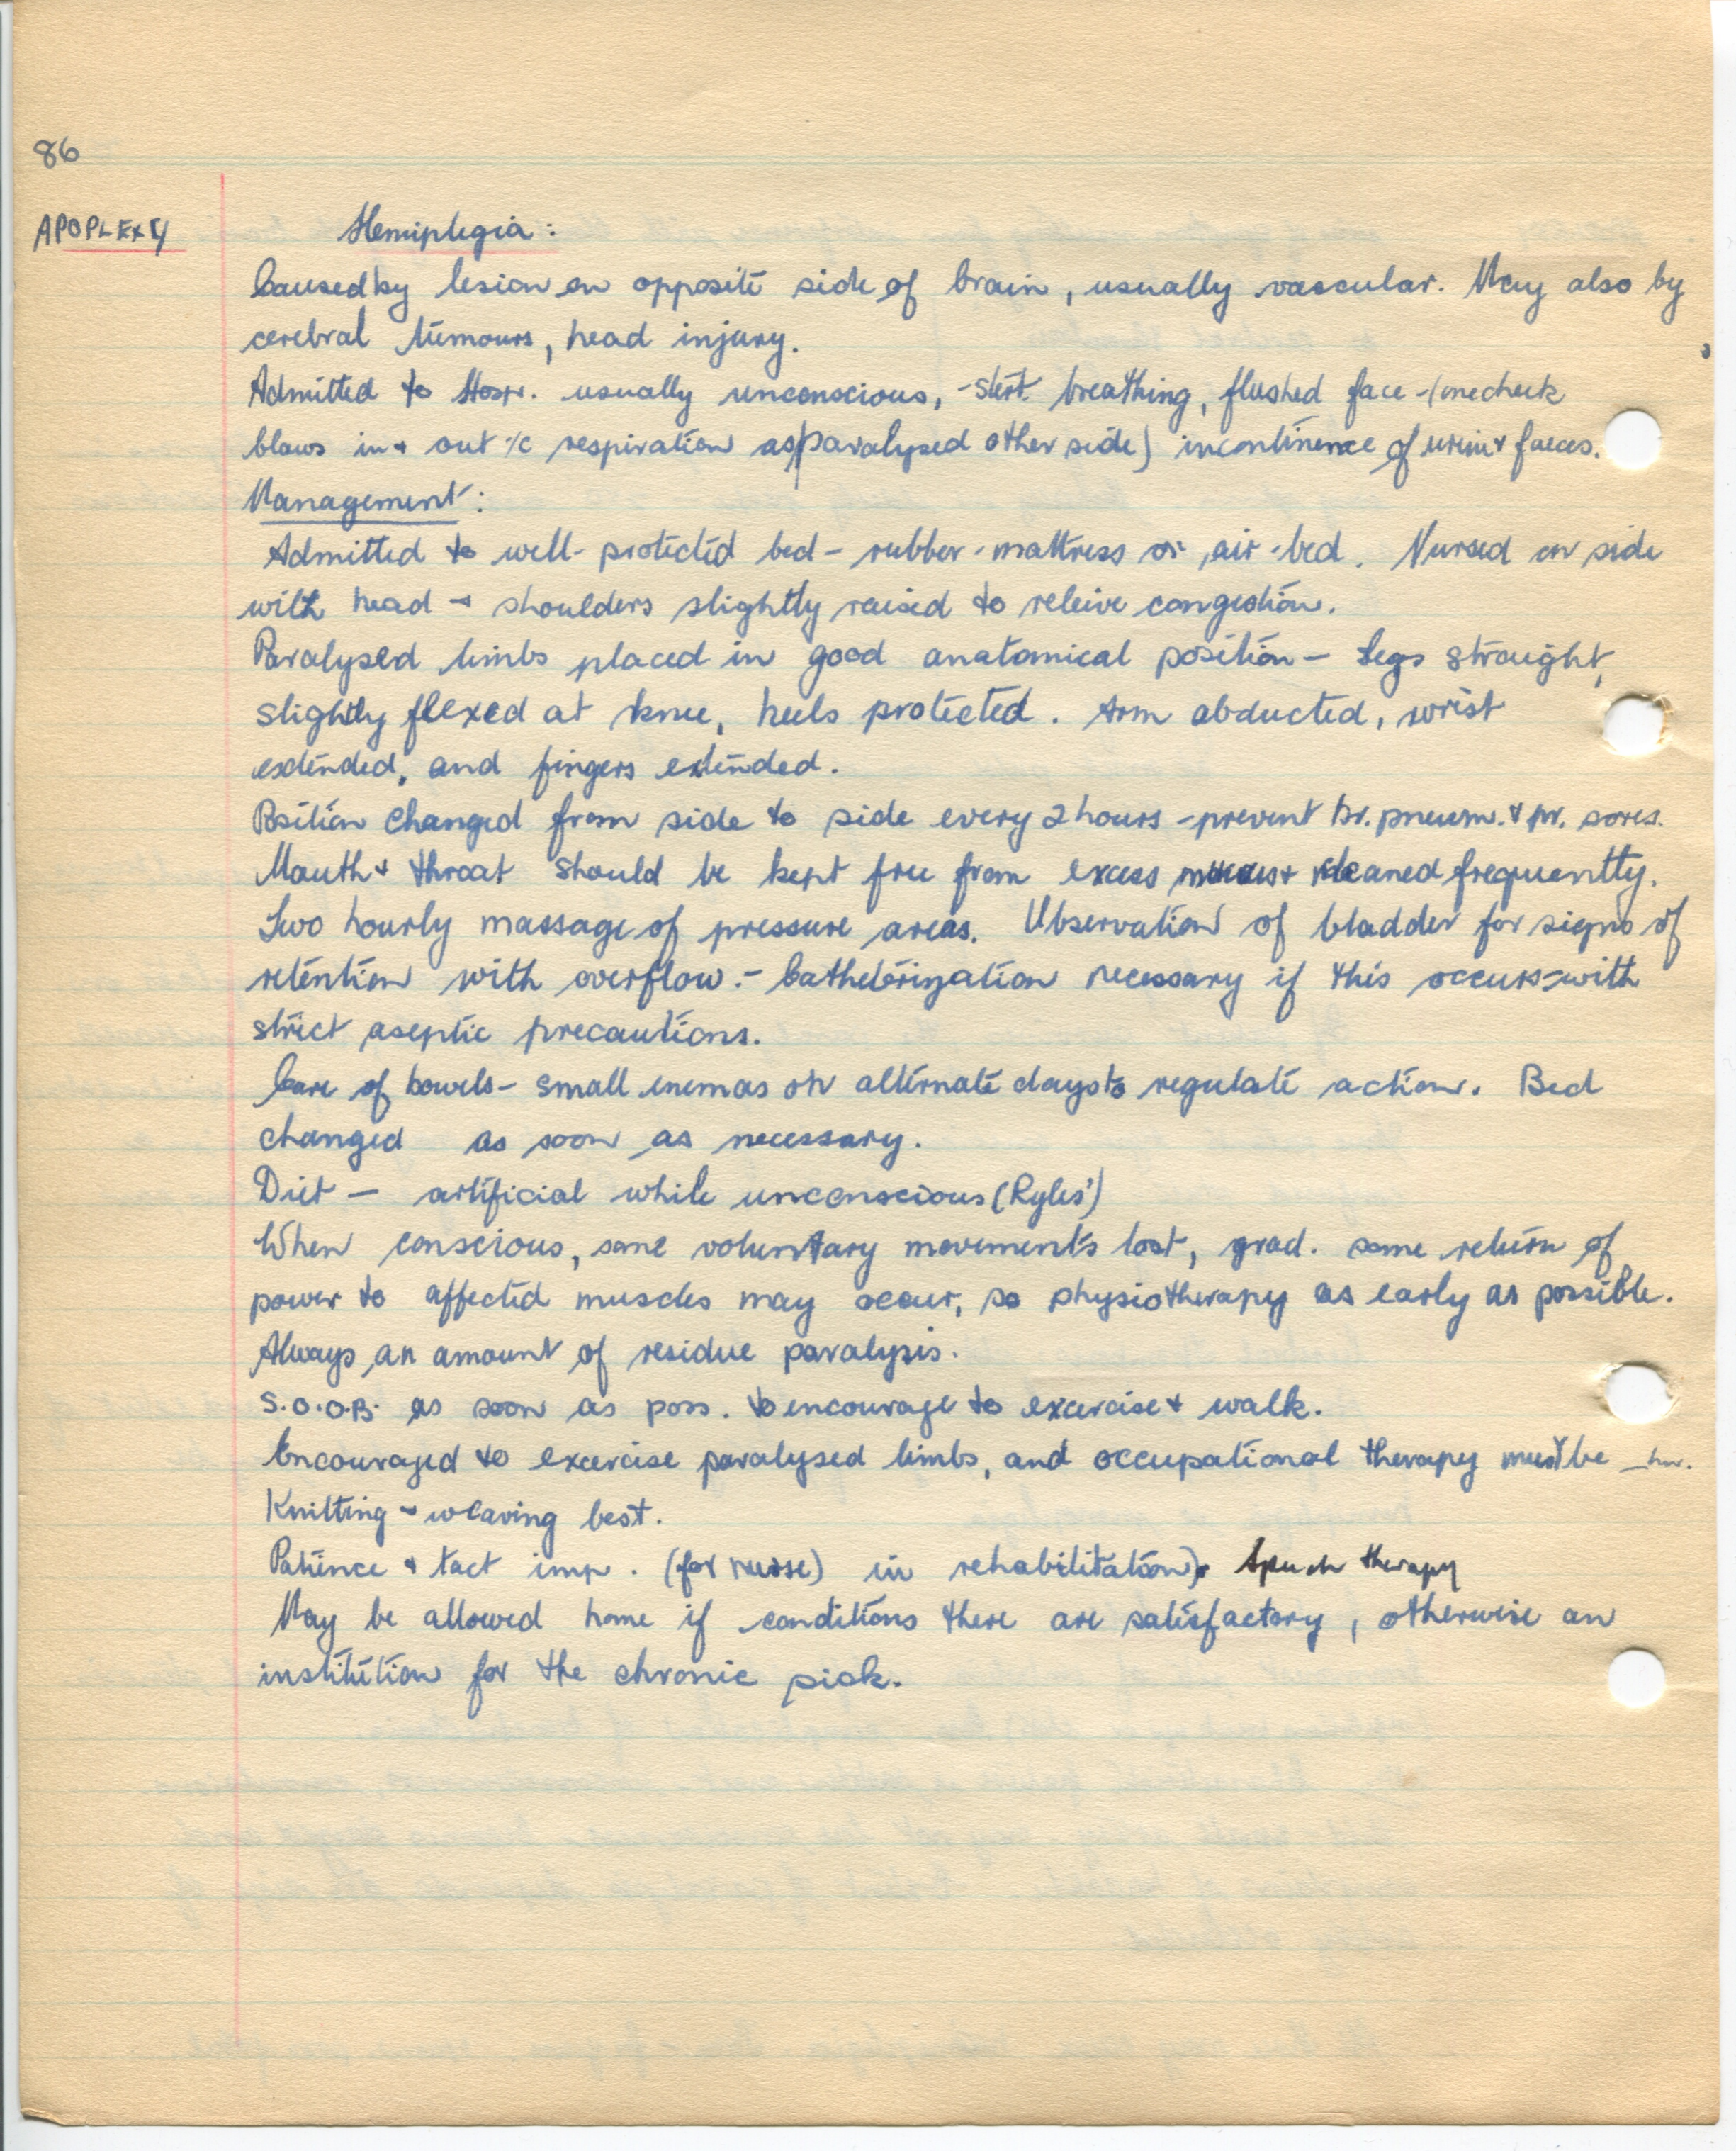 86
APOPLEXY
Hemiplegia:
Caused by lesion on opposite side of brain, usually vascular. May also by
cerebral tumours, head injury.
Admitted to Hosp. usually unconscious, - stert. breathing, flushed face - (one cheek
blows in + out c̄ respiration as paralysed other side) incontinence of urine + faeces.
Management:
Admitted to well-protected bed - rubber-mattress or air-bed. Nursed on side
with head + shoulders slightly raised to releive congestion.
Paralysed limbs placed in good anatomical position - Legs straight,
slightly flexed at knee, heels protected. Arm abducted, wrist
extended, and fingers extended.
Position changed from side to side every 2 hours - prevent br. pneum. + pr. sores.
Mouth + throat should be kept free from excess mucus + cleaned frequently.
Two hourly massage of pressure areas. Observation of bladder for signs of
retention with overflow. - Catheterization necessary if this occurs - with
strict aseptic precautions.
Care of bowels - small enemas on alternate days to regulate action. Bed
changed as soon as necessary.
Diet - artificial while unconscious (Ryles')
When conscious, some voluntary movements lost, grad. some return of
power to affected muscles may occur, so physiotherapy as early as possible.
Always an amount of residue paralysis.
S.O.O.B. as soon as poss. to encourage to excercise + walk.
Encouraged to excercise paralysed limbs, and occupational therapy must be
Knitting + weaving best.
Patience + tact imp. (for nurse) in rehabilitation). Speech therapy
May be allowed home if conditions there are satisfactory, otherwise an
institution for the chronic sick.